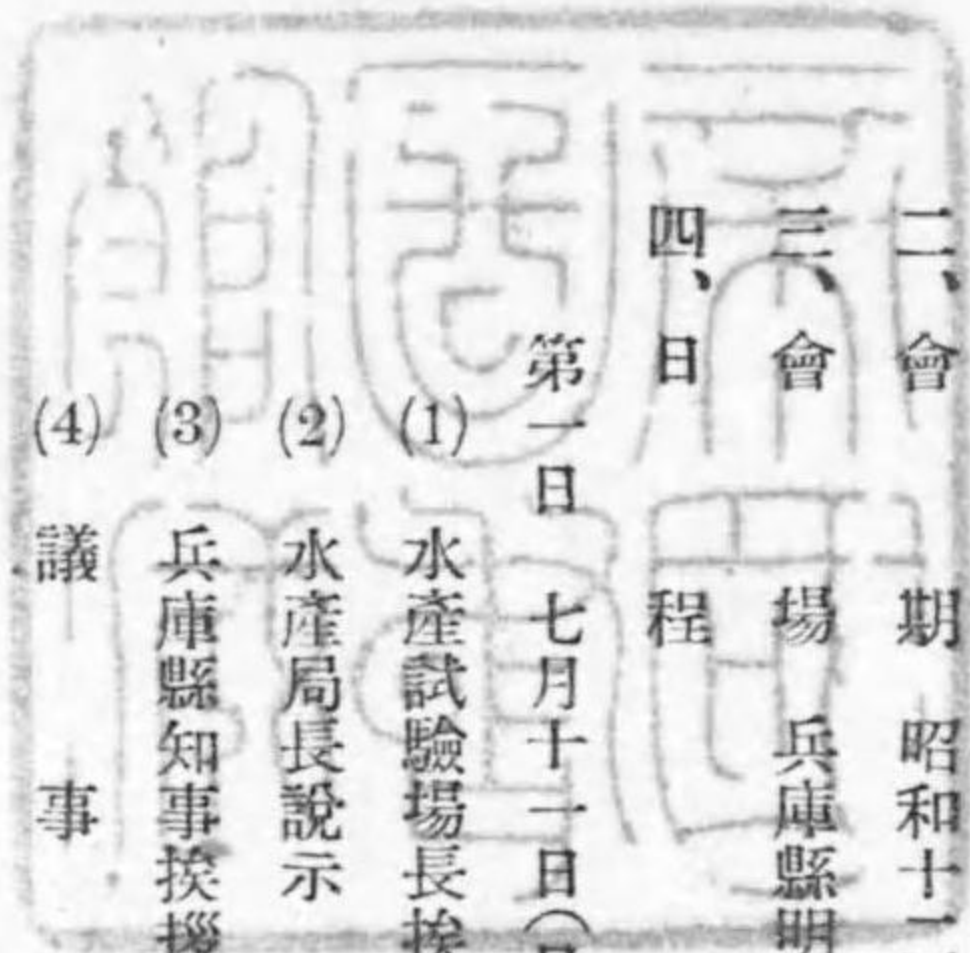 二、會期 昭和十一
三、會場 兵庫縣明
四、日程
第一日 七月十一日(
(1) 水產試驗場長挨
(2) 水產局長說示
(3) 兵庫縣知事挨拶
(4) 議事